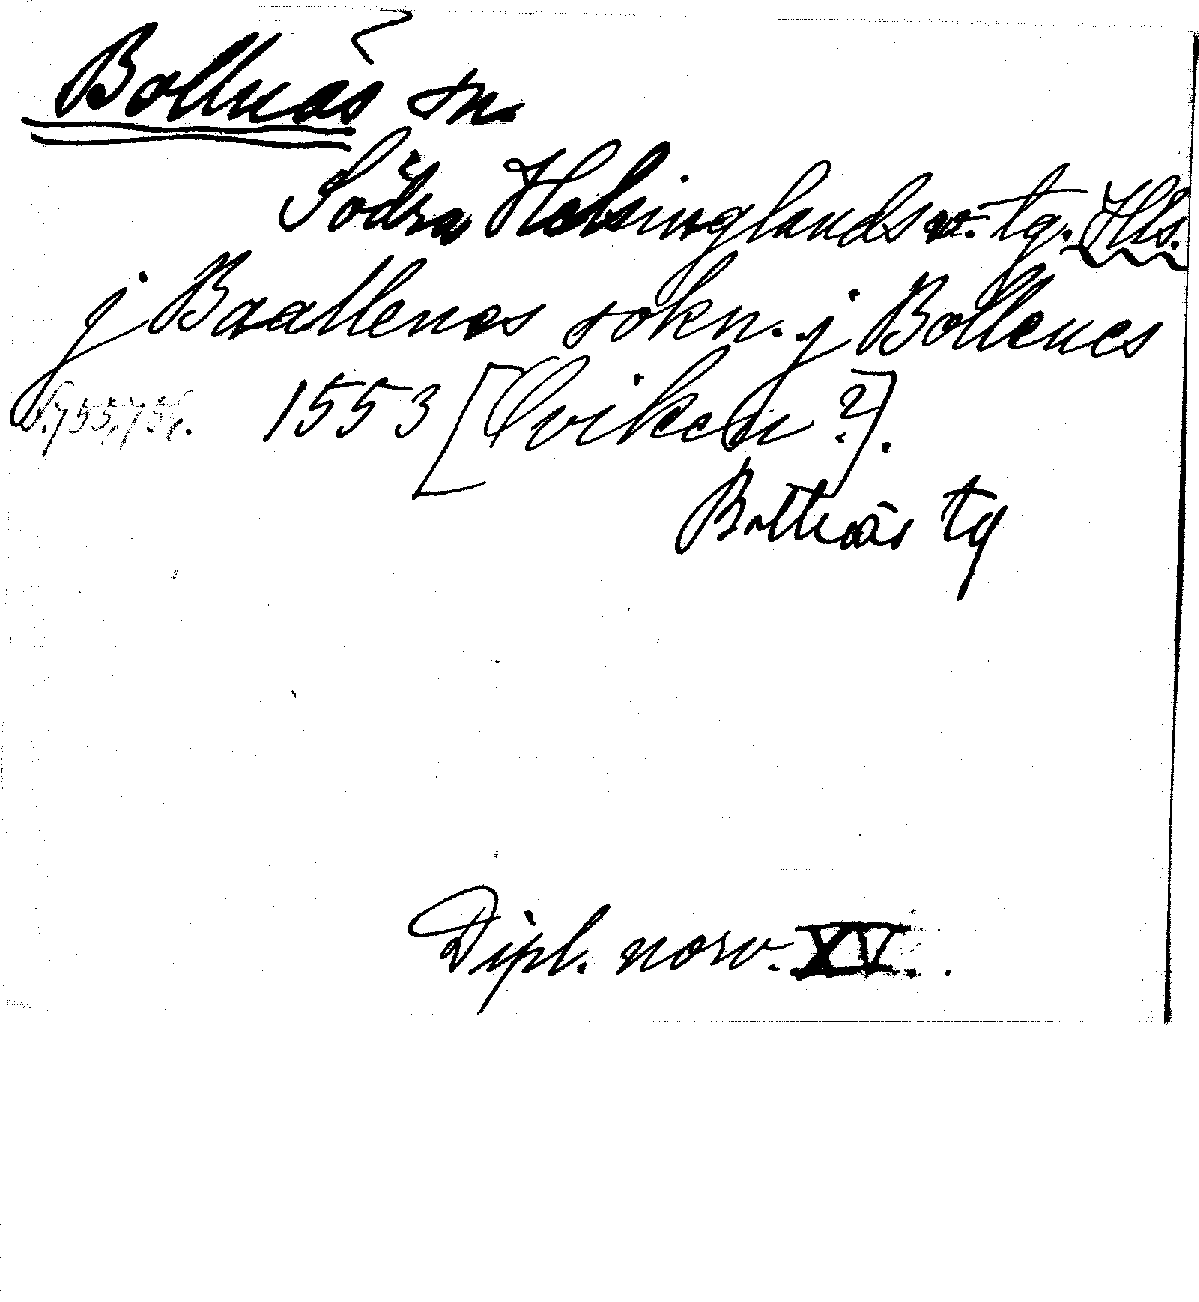 Bollnäs sn.
Södra Helsinglands v. tg. Hls.
j Baallenes sokn. j Bollenes
S. 755, 756. 1553 [Oviken?].
Bollnäs tg
Dipl. norv. XV.